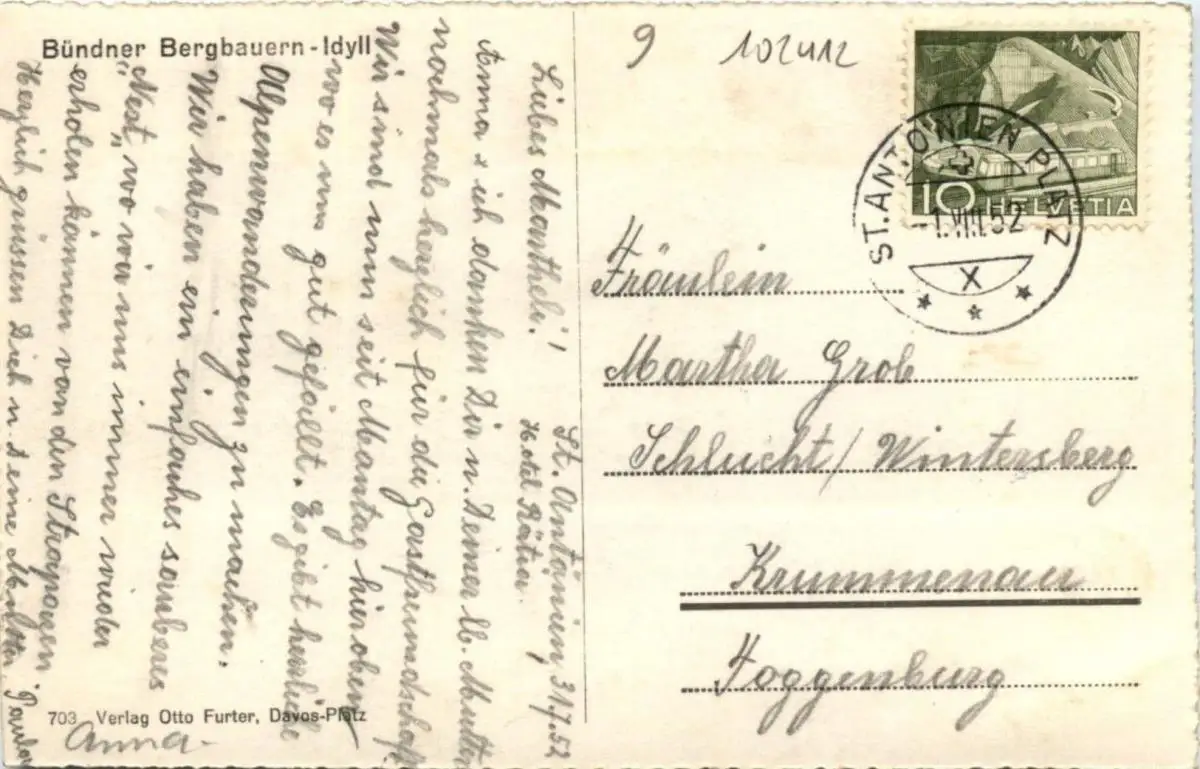 Bündner Bergbauern-Idyll
St. Antönien 31.7.52
Hotel Rätia.
Liebes Martheli!
Anna u ich danken Dir u. Deiner lb. Mutter
nochmals herzlich für die Gastfreundschaft.
Wir sind nun seit Montag hier oben,
wo es uns gut gefällt. Es gibt herrliche
Alpenwanderungen zu machen.
Wir haben ein einfaches sauberes
"Nest", wo wir uns immer wieder
erholen können von den Strapazen
Herzlich grüssen Dich u Deine Mutter
Anna
703 Verlag Otto Furter, Davos-Platz
9 102412
10 HELVETIA
ST. ANTÖNIEN PLATZ
-1.VIII.52
X
Fräulein
Martha Grob
Schlucht/Wintersberg
Krummenau
Toggenburg